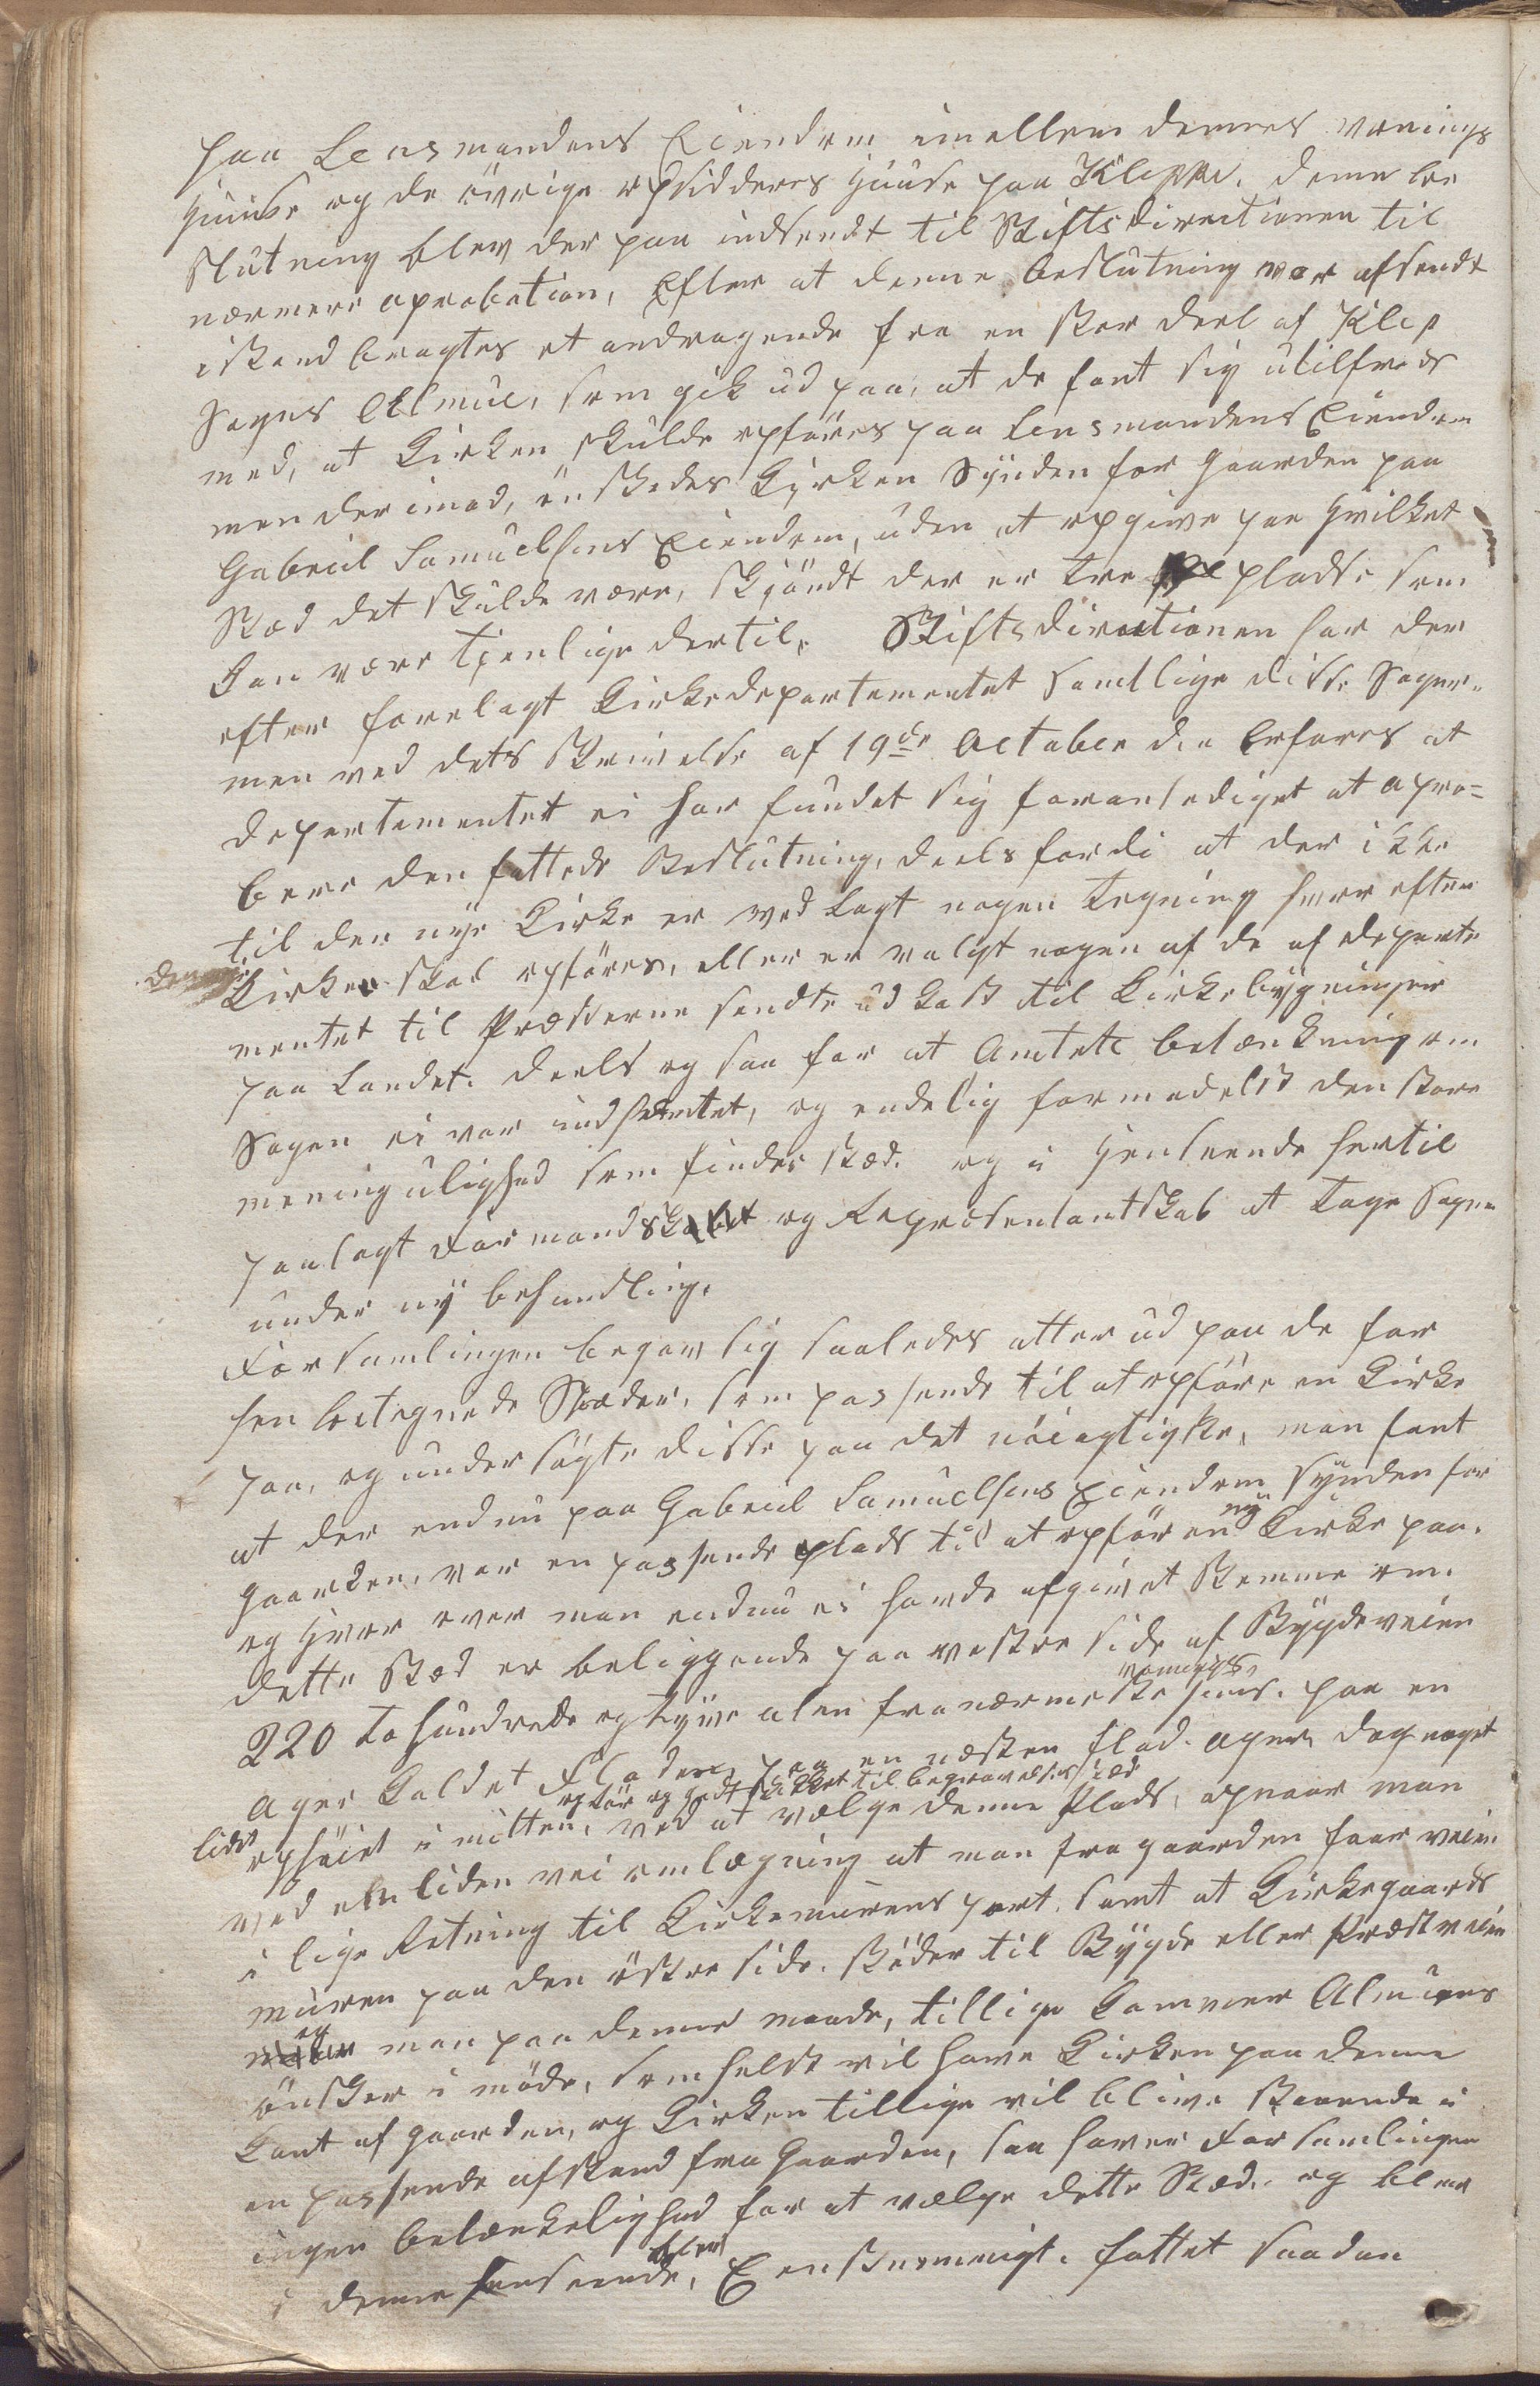 paa Lensmandens Eiendom imellem dennes vaanings
Huuse og de övrige opsidderes Huuse paa Kleppe. denne be
slutning blev der paa indsendt til Stiftsdirectionen til
nærmere aprobation, Efter at denne beslutning var afsendt
istand bragtes et andragende fra en stor deel af Klep
Sogns Almue, som gik ud paa, at de fant sig utilfreds
med, at Kirken skulde opföres paa Lensmandens Eiendom
men derimod, önskedes Kirken Synden for Gaarden paa
Gabriel Samuelsens Eiendom, uden at opgive paa Hvilket
Stæd det skulde være, skjöndt der er tre pladse som
kan være tjenlige dertil. Stiftsdirectionen har der
efter forelagt Kirkedepartementet samtlige disse Sager.
men ved dets skrivelse af 19de October d.a. Erfares at
departementet ei har fundet sig foranlediget at apro=
bere den fattede Beslutning, deels fordi at der ikke
til den nye Kirke er ved lagt nogen tegning hvor efter
Kirken skal opföres, eller er valgt nogen af de af departe
mentet til Præsterne sendte udkast til Kirkebygninger
paa Landet. deels og saa for at Amtets betænkning om
Sagen ei var indhentet, og endelig formedelst den store
meningulighed som findes stæd. og i Henseende hertil
paalagt Formandskabet og Representantskab at tage Sagen
under ny behandling.
Forsamlingen begav sig saaledes atter ud paa de for
hen betegnede Stæder, som passende til at opföre en Kirke
paa, og undersögte disse paa det nöiagtigste, man fant
at der endnu paa Gabriel Samuelsens Eiendom synden for
Gaarden, var en passende plads til at opför en ny Kirke paa.
og Hvor over man endnu ei havde afgivet Stemme om.
dette Stæd er beliggende paa vestre side af Bygdeveien
220 to hundrede og tyve alen fra nærmeste vaanings huus. paa en
ager kaldet Fladen, paa en næsten flad ager, dog noget
lidet ophöiet i mitten, og tör og godt skikket til begravelses stæd ved at vælge denne Plads, opnaar man
ved en liden vei omlægning at man fra gaarden faar veien
i lige Retning til Kirkemurens port. samt at Kirkegaards
muren paa den östre side. stöder til Bygde eller Præstveien
og man paa denne maade, tillige kommer Almuens
önsker i möde, som helst vil have Kirken paa denne
kant af gaarden, og Kirken tillige vil blive staaende i
en passende afstand fra Gaarden, saa haver Forsamlingen
ingen betænkelighed for at vælge dette Stæd. og blev
i denne henseende, blev Eenstemmigt. fattet saadan